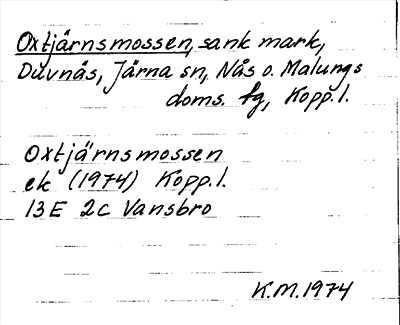 Oxtjärnsmossen, sank mark,
Duvnås, Järna sn, Nås o. Malungs
doms. fg, Kopp. l.
Oxtjärnsmossen
ek (1974) Kopp. l.
13E 2c Vansbro
K.M. 1974